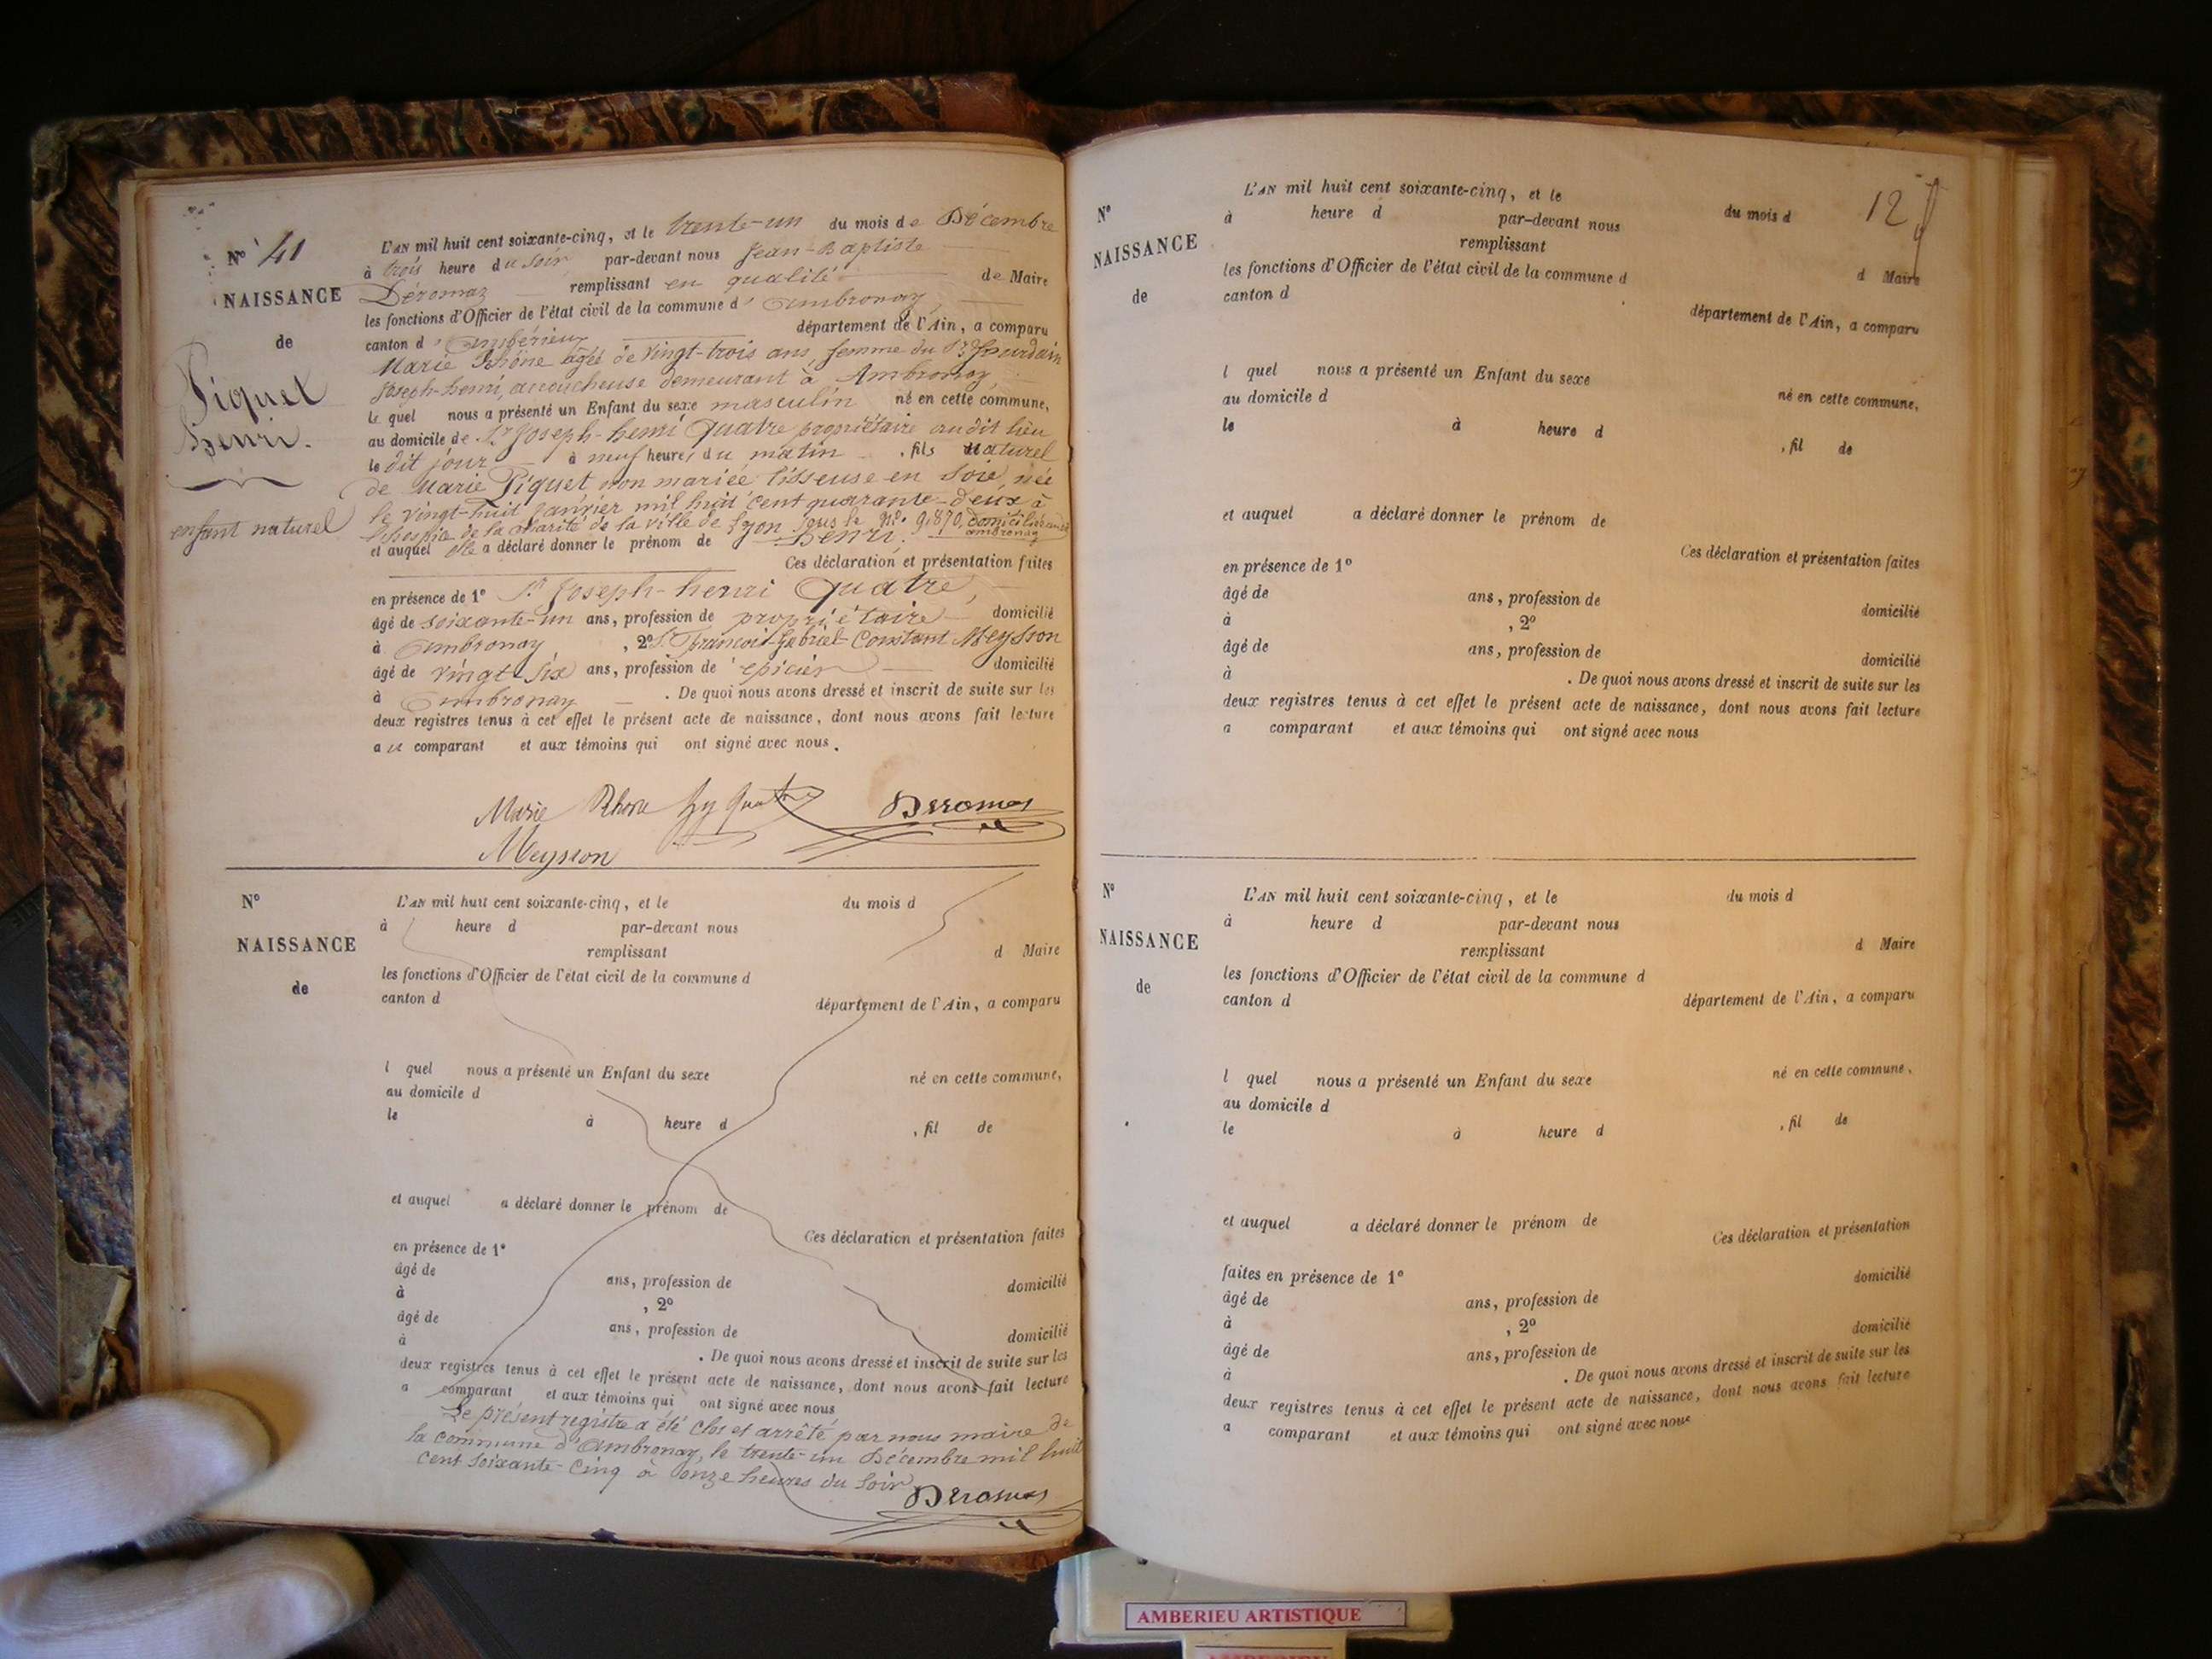 N° 41
NAISSANCE
de
Piquet
henri.
enfant naturel
L'AN mil huit cent soixante-cinq, et le trente-un du mois de Décembre
à trois heure du soir par-devant nous Jean-Baptiste
Déromaz remplissant en qualité de Maire
les fonctions d'Officier de l'état civil de la commune d' Ambronay,
canton d' Ambérieux département de l'Ain, a comparu
Marie Rhône âgée de vingt-trois ans, femme du Sr Jourdain
Joseph-henri, accoucheuse demeurant à Ambronay,
le quel nous a présenté un Enfant du sexe masculin né en cette commune,
au domicile de Sr Joseph-henri Quatre propriétaire audit lieu
le dit jour à neuf heures du matin, fils naturel
de Marie Piquet non mariée tisseuse en Soie, née
le vingt-huit janvier mil huit cent quarante-deux à
l'hospice de la charité de la ville de Lyon sous le No. 9,870, domiciliée
ambronay
et auquel elle a déclaré donner le prénom de henri.
Ces déclaration et présentation faites
en présence de 1° Sr Joseph-henri Quatre,
âgé de soixante-un ans, profession de propriétaire domicilié
à Ambronay, 2° Sr François Gabriel-Constant Meysson
âgé de vingt-six ans, profession de epicier domicilié
à Ambronay. De quoi nous avons dressé et inscrit de suite sur les
deux registres tenus à cet effet le présent acte de naissance, dont nous avons fait lecture
au comparant et aux témoins qui ont signé avec nous.
Marie Rhone hy Quatre Deromas
Meysson
N°
NAISSANCE
de
L'AN mil huit cent soixante-cinq, et le du mois d
à heure d par-devant nous
remplissant d Maire
les fonctions d'Officier de l'état civil de la commune d
canton d département de l'Ain, a comparu
l quel nous a présenté un Enfant du sexe né en cette commune,
au domicile d
le à heure d , fil de
et auquel a déclaré donner le prénom de
Ces déclaration et présentation faites
en présence de 1°
âgé de ans, profession de domicilié
à , 2°
âgé de ans, profession de domicilié
à . De quoi nous avons dressé et inscrit de suite sur les
deux registres tenus à cet effet le présent acte de naissance, dont nous avons fait lecture
a comparant et aux témoins qui ont signé avec nous
Le présent registre a été clos et arrêté par nous maire de
la commune d'Ambronay, le trente-un Décembre mil huit
cent soixante-cinq à onze heures du soir
Deromas
12
N°
NAISSANCE
de
L'AN mil huit cent soixante-cinq, et le du mois d
à heure d par-devant nous
remplissant d Maire
les fonctions d'Officier de l'état civil de la commune d
canton d département de l'Ain, a comparu
l quel nous a présenté un Enfant du sexe né en cette commune,
au domicile d
le à heure d , fil de
et auquel a déclaré donner le prénom de
Ces déclaration et présentation faites
en présence de 1°
âgé de ans, profession de domicilié
à , 2°
âgé de ans, profession de domicilié
à . De quoi nous avons dressé et inscrit de suite sur les
deux registres tenus à cet effet le présent acte de naissance, dont nous avons fait lecture
a comparant et aux témoins qui ont signé avec nous
N°
NAISSANCE
de
L'AN mil huit cent soixante-cinq, et le du mois d
à heure d par-devant nous
remplissant d Maire
les fonctions d'Officier de l'état civil de la commune d
canton d département de l'Ain, a comparu
l quel nous a présenté un Enfant du sexe né en cette commune,
au domicile d
le à heure d , fil de
et auquel a déclaré donner le prénom de
Ces déclaration et présentation
faites en présence de 1° domicilié
âgé de ans, profession de
à , 2° domicilié
âgé de ans, profession de
à . De quoi nous avons dressé et inscrit de suite sur les
deux registres tenus à cet effet le présent acte de naissance, dont nous avons fait lecture
a comparant et aux témoins qui ont signé avec nous
AMBERIEU ARTISTIQUE
AMBERIEU